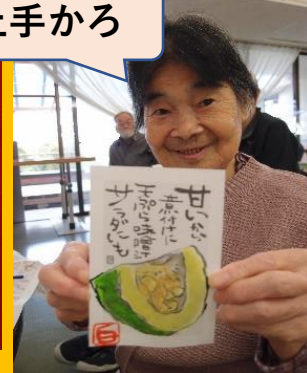 上手かろ
甘いから
煮付けに
天ぷら味噌汁
サラダにも